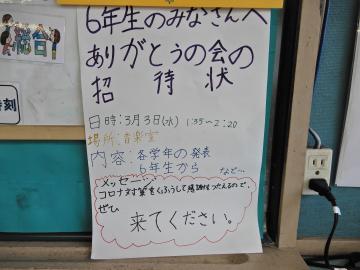 6年生のみなさんへ
ありがとうの会の
招待状
日時:3月3日(水) 1:35〜2:20
場所:音楽室
内容:各学年の発表
6年生から
など…
メッセージ…
コロナ対策をくふうして感謝をつたえるので、
ぜひ、
来てください。
総合
刻